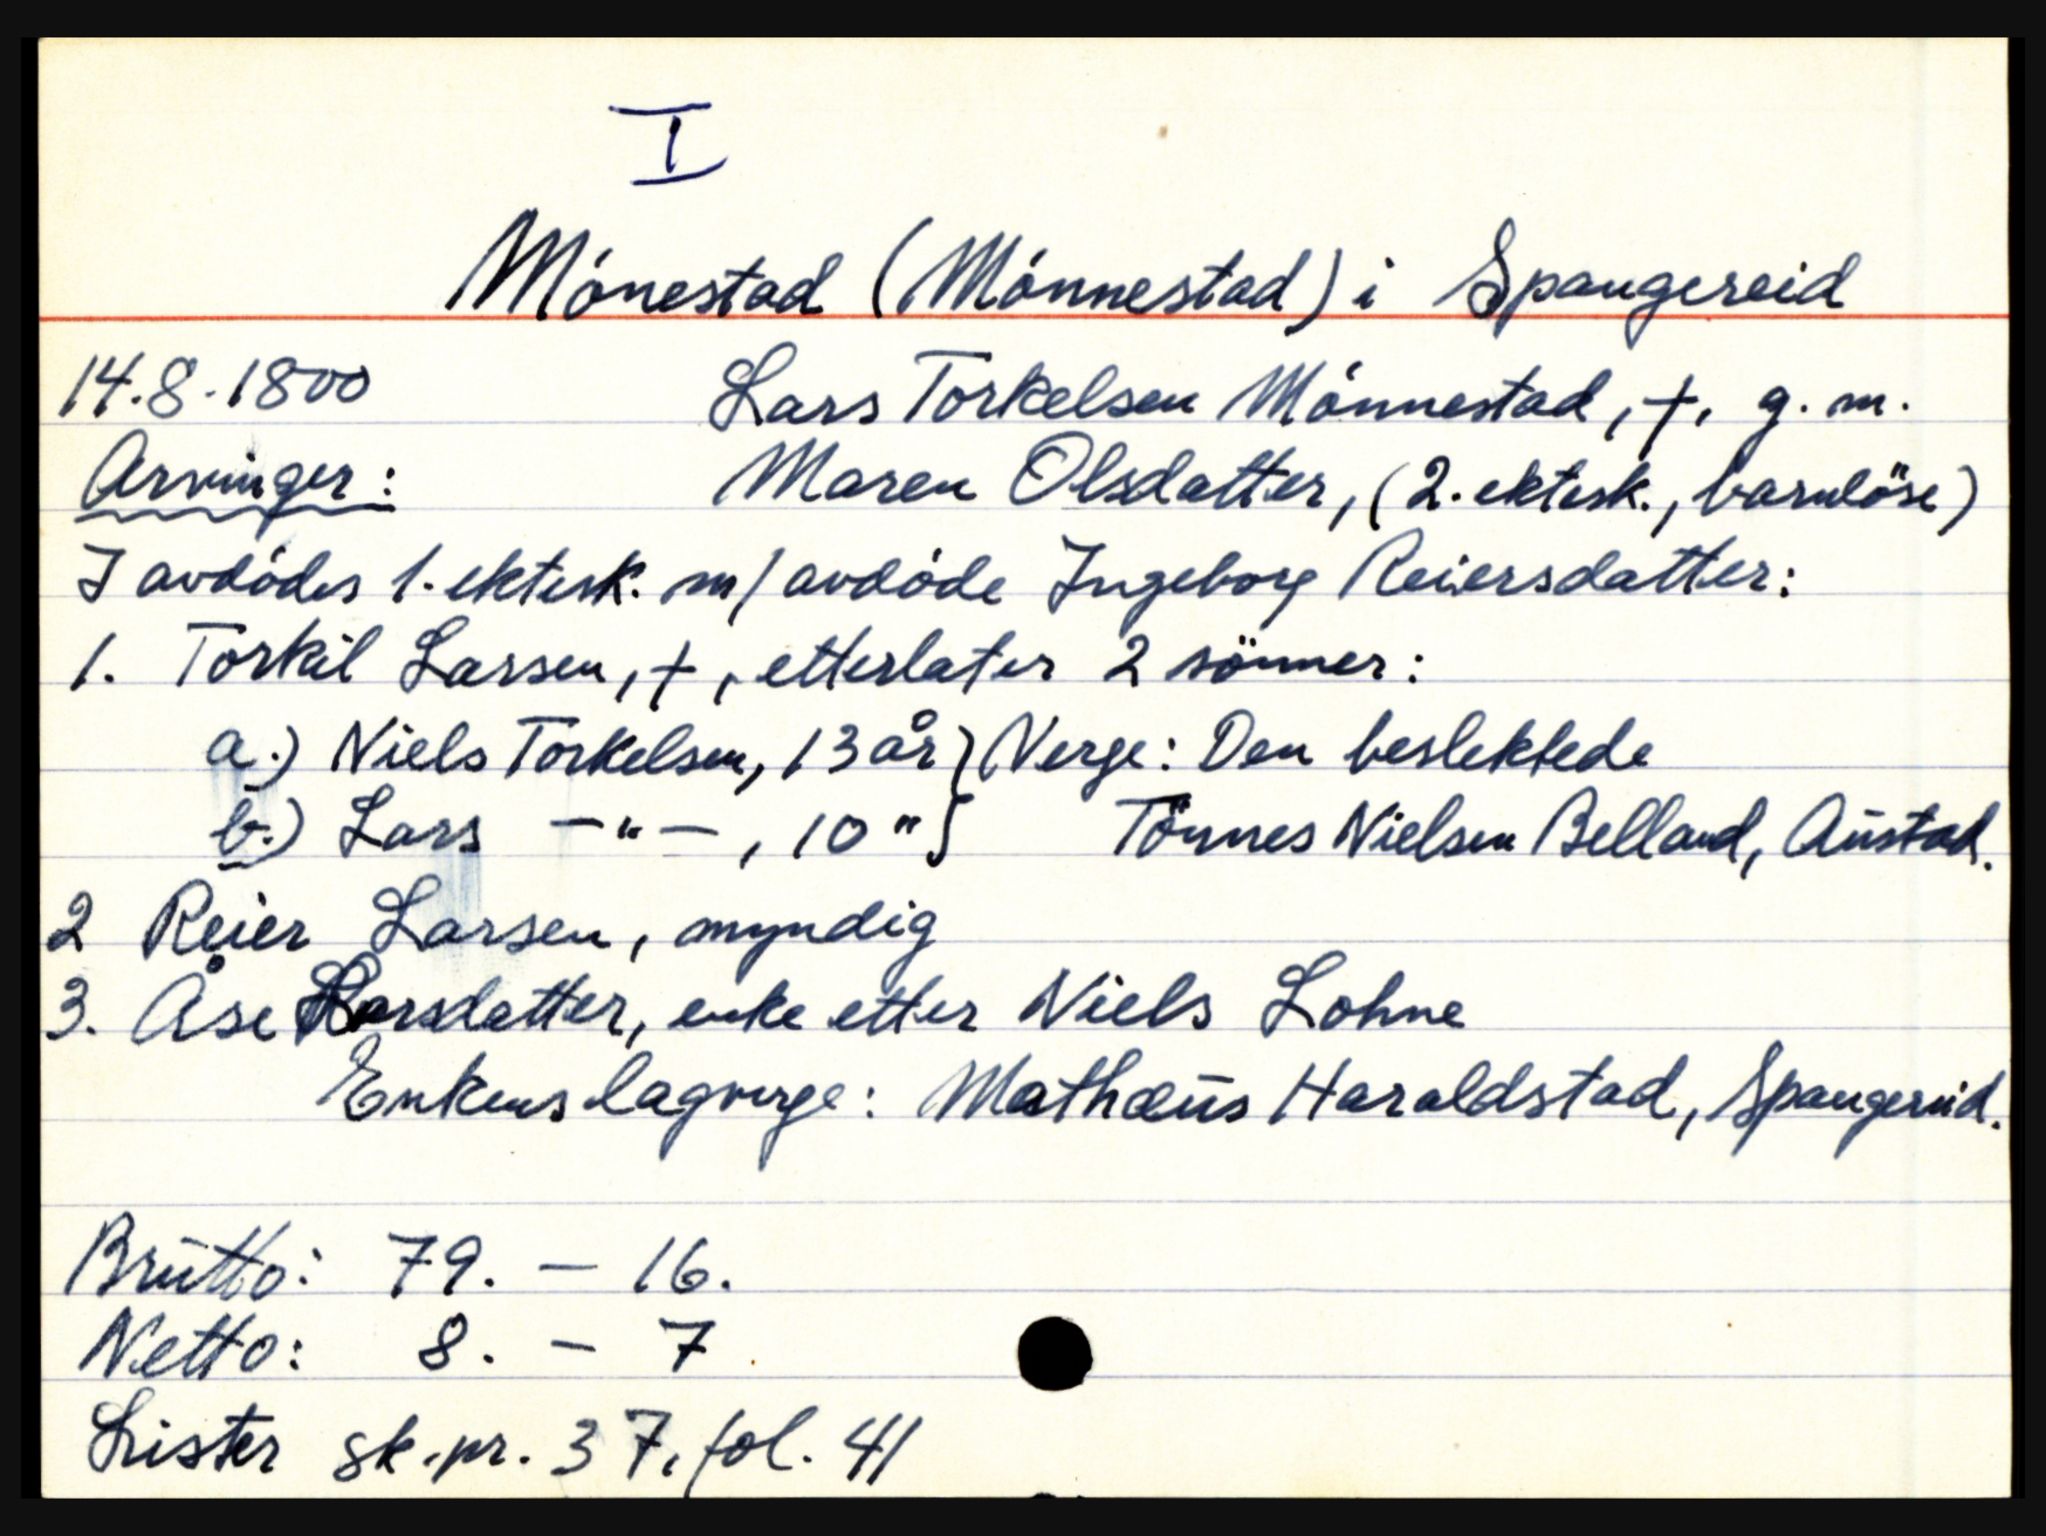 I
Mónestad (Mónnestad) i Spangereid
14.8.1800 Lars Torkelsen Mónnestad, †, g. m.
Arvinger: Maren Olsdatter, (2. ektesk., barnlöse)
I avdódes 1. ektesk. m/ avdóde Ingeborg Reiersdatter:
1. Torkil Larsen, †, etterlater 2 sönner:
a.) Niels Torkelsen, 13 år } Verge: Den beslektede
b.) Lars — " — , 10 " } Tönnes Nielsen Belland, Austad.
2 Reier Larsen, myndig
3. Åse Larsdatter, enke etter Niels Lohne
Enkens lagverge: Mathæus Haraldstad, Spangereid.
Brutto: 79. — 16.
Netto: 8. — 7
Lister sk.pr. 37, fol. 41